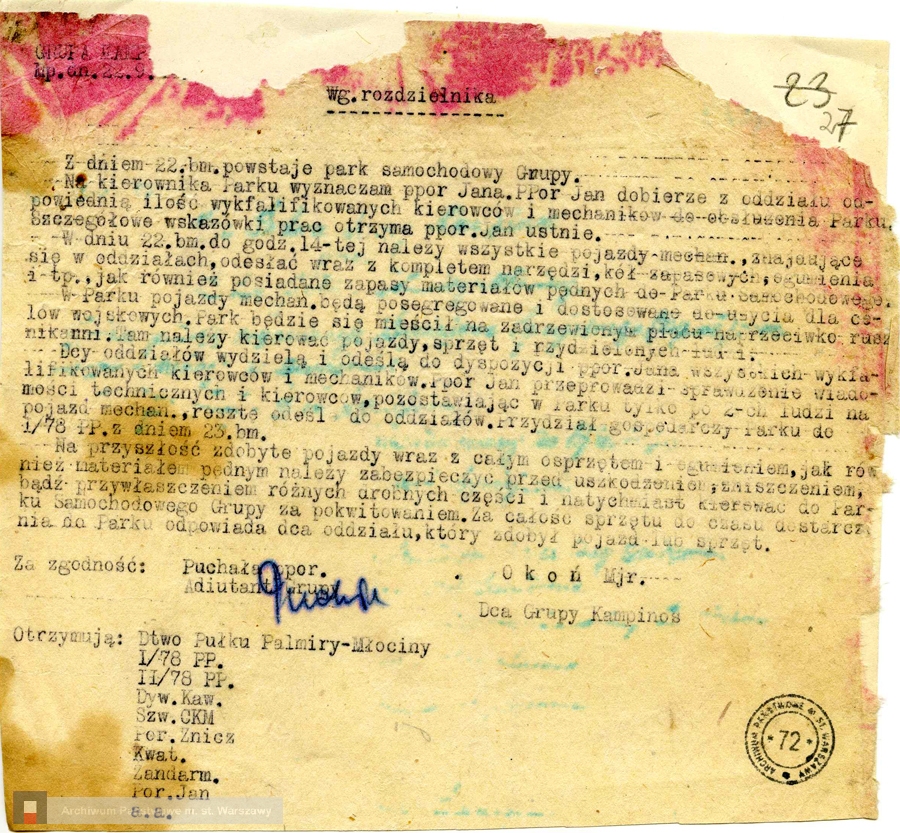 GRUPA KAMP
Mp.dn.22.9.
23
27
Wg.rozdzielnika
Z dniem 22.bm.powstaje park samochodowy Grupy.
Na kierownika Parku wyznaczam ppor Jana.PPor Jan dobierze z oddziału od-
powiednią ilość wykfalifikowanych kierowców i mechaników do obsłużenia Parku.
Szczegółowe wskazówki prac otrzyma ppor.Jan ustnie.
W dniu 22.bm.do godz.14-tej należy wszystkie pojazdy mechan.,znajdujące
się w oddziałach,odesłać wraz z kompletem narzędzi,kół zapasowych,ogumienia
i tp.,jak również posiadane zapasy materiałów pędnych do Parku Samochodowego.
W Parku pojazdy mechan.będą posegregowane i dostosowane do użycia dla ce-
lów wojskowych.Park będzie się mieścił na zadrzewionym placu naprzeciwko rusz
nikarni.Tam należy kierować pojazdy,sprzęt i ludzi.
Dcy oddziałów wydzielą i odeślą do dyspozycji ppor.Jana wszystkich wykfa-
lifikowanych kierowców i mechaników.Ppor Jan przeprowadzi sprawdzenie wiado-
mości technicznych i kierowców,pozostawiając w Parku tylko po 2-ch ludzi na
pojazd mechan.,resztę odeśl do oddziałów.Przydział gospodarczy Parku do
I/78 PP.z dniem 23.bm.
Na przyszłość zdobyte pojazdy wraz z całym osprzętem i ogumieniem,jak rów
nież materiałem pędnym należy zabezpieczyć przed uszkodzeniem,zniszczeniem,
bądź przywłaszczeniem różnych drobnych części i natychmiast kierować do Par-
ku Samochodowego Grupy za pokwitowaniem.Za całość sprzętu do czasu dostarcz
nia do Parku odpowiada dca oddziału,który zdobył pojazd lub sprzęt.
Za zgodność: Puchała ppor. O k o ń Mjr.
Adiutant Grupy
Dca Grupy Kampinos
Otrzymują: Dtwo Pułku Palmiry-Młociny
I/78 PP.
II/78 PP.
Dyw.Kaw.
Szw.CKM
Por.Znicz
Kwat.
Żandarm.
Por.Jan
a.a.
ARCHIWUM PAŃSTWOWE M. ST. WARSZAWY
* 72 *
Archiwum Państwowe m. st. Warszawy